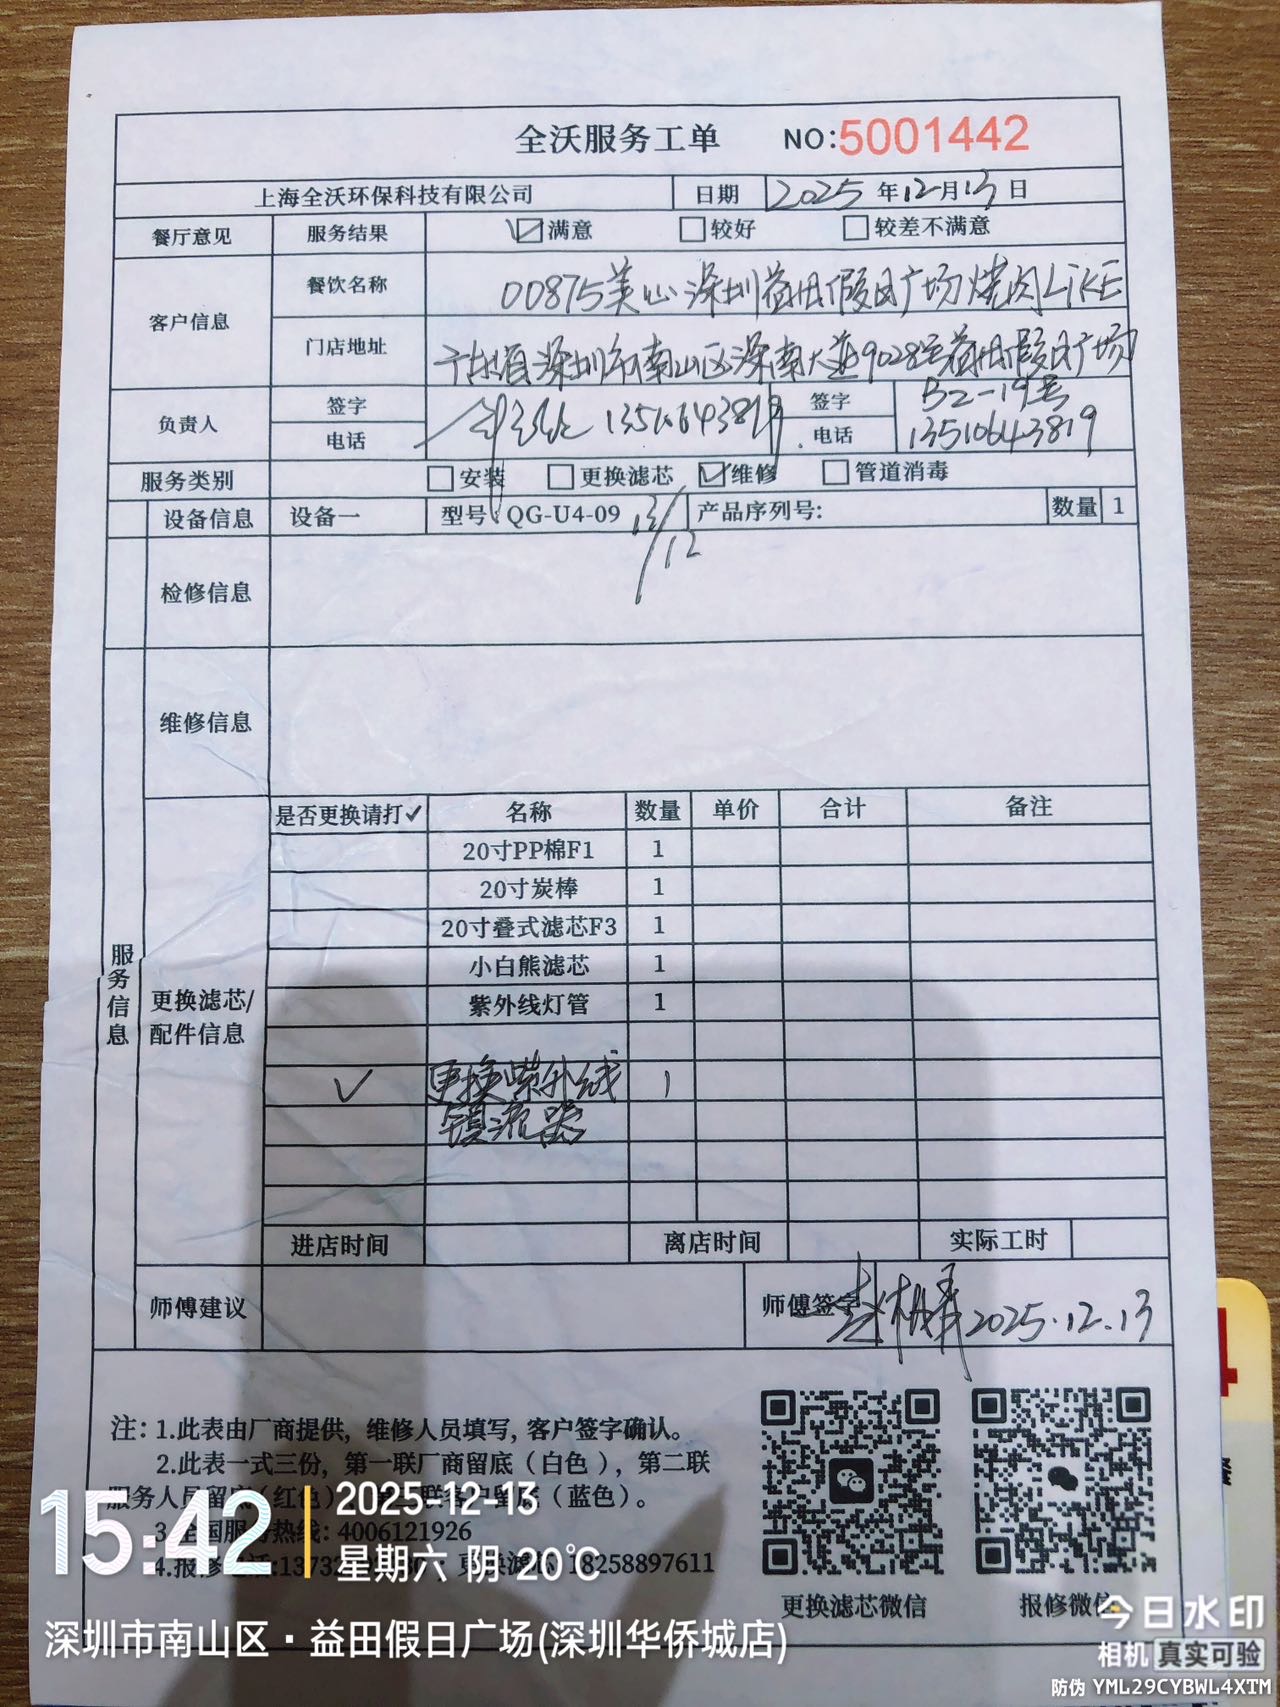 全沃服务工单 NO:5001442
上海全沃环保科技有限公司 日期 2025 年 12 月 13 日
餐厅意见 服务结果 ☑满意 □较好 □较差不满意
客户信息 餐饮名称 00875美心深圳益田假日广场烧肉LiKE
门店地址 广东省深圳市南山区深南大道9028号益田假日广场
B2-19号
负责人 签字 13510643819 签字
电话 电话 13510643819
服务类别 □安装 □更换滤芯 ☑维修 □管道消毒
设备信息 设备一 型号: QG-U4-09 产品序列号: 数量 1
13/12
检修信息
维修信息
服务信息
更换滤芯/配件信息
是否更换请打✓ 名称 数量 单价 合计 备注
20寸PP棉F1 1
20寸炭棒 1
20寸叠式滤芯F3 1
小白熊滤芯 1
紫外线灯管 1
✓ 更换紫外线 1
镇流器
进店时间 离店时间 实际工时
师傅建议 师傅签字 2025.12.13
注: 1.此表由厂商提供, 维修人员填写, 客户签字确认。
2.此表一式三份, 第一联厂商留底(白色), 第二联
服务人员留底(红色) 联客户留底(蓝色)。
3.全国服务热线: 4006121926
4.报修 更换滤芯 18258897611
更换滤芯微信 报修微信
15:42 2025-12-13
星期六 阴 20℃
深圳市南山区·益田假日广场(深圳华侨城店)
今日水印
相机 真实可验
防伪 YML29CYBWL4XTM